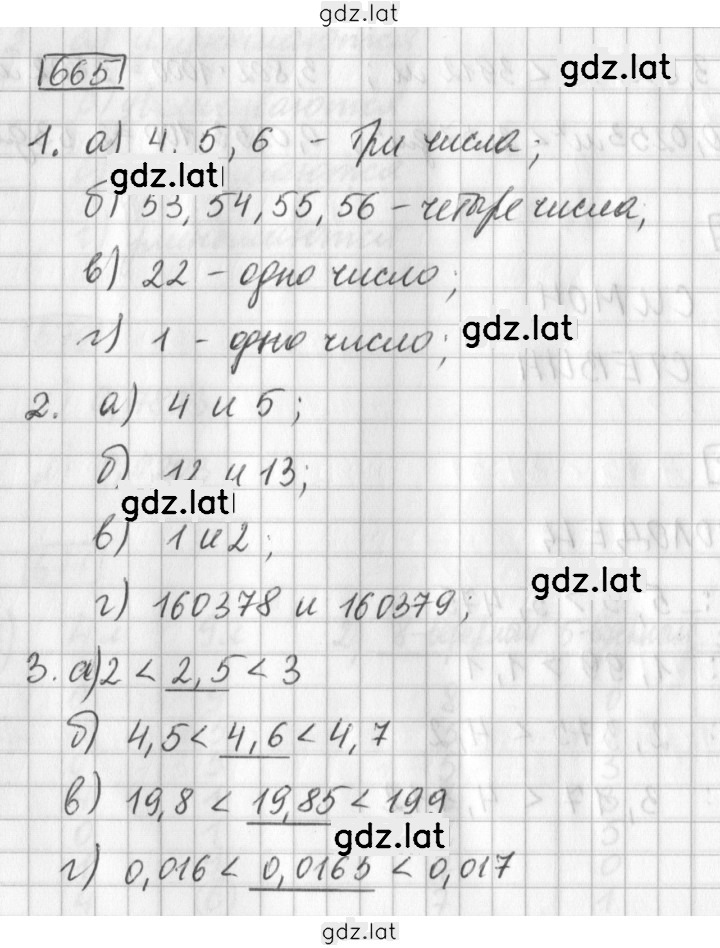 gdz.lat
665
gdz.lat
1. а) 4. 5, 6 - три числа;
gdz.lat
б) 53, 54, 55, 56 - четыре числа;
в) 22 - одно число;
г) 1 - одно число;
gdz.lat
2. а) 4 и 5;
б) 12 и 13;
gdz.lat
в) 1 и 2;
gdz.lat
г) 160378 и 160379;
3. а) 2 < 2,5 < 3
б) 4,5 < 4,6 < 4,7
в) 19,8 < 19,85 < 199
gdz.lat
г) 0,016 < 0,0165 < 0,017
gdz.lat